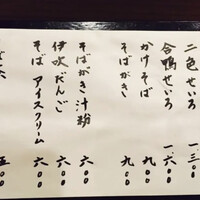 二色せいろ 一、三〇〇
合鴨せいろ 一、六〇〇
かけそば 九〇〇
そばがき 九〇〇
そばがき汁粉 六〇〇
伊吹だんご 六〇〇
そばアイスクリーム 六〇〇
五〇〇